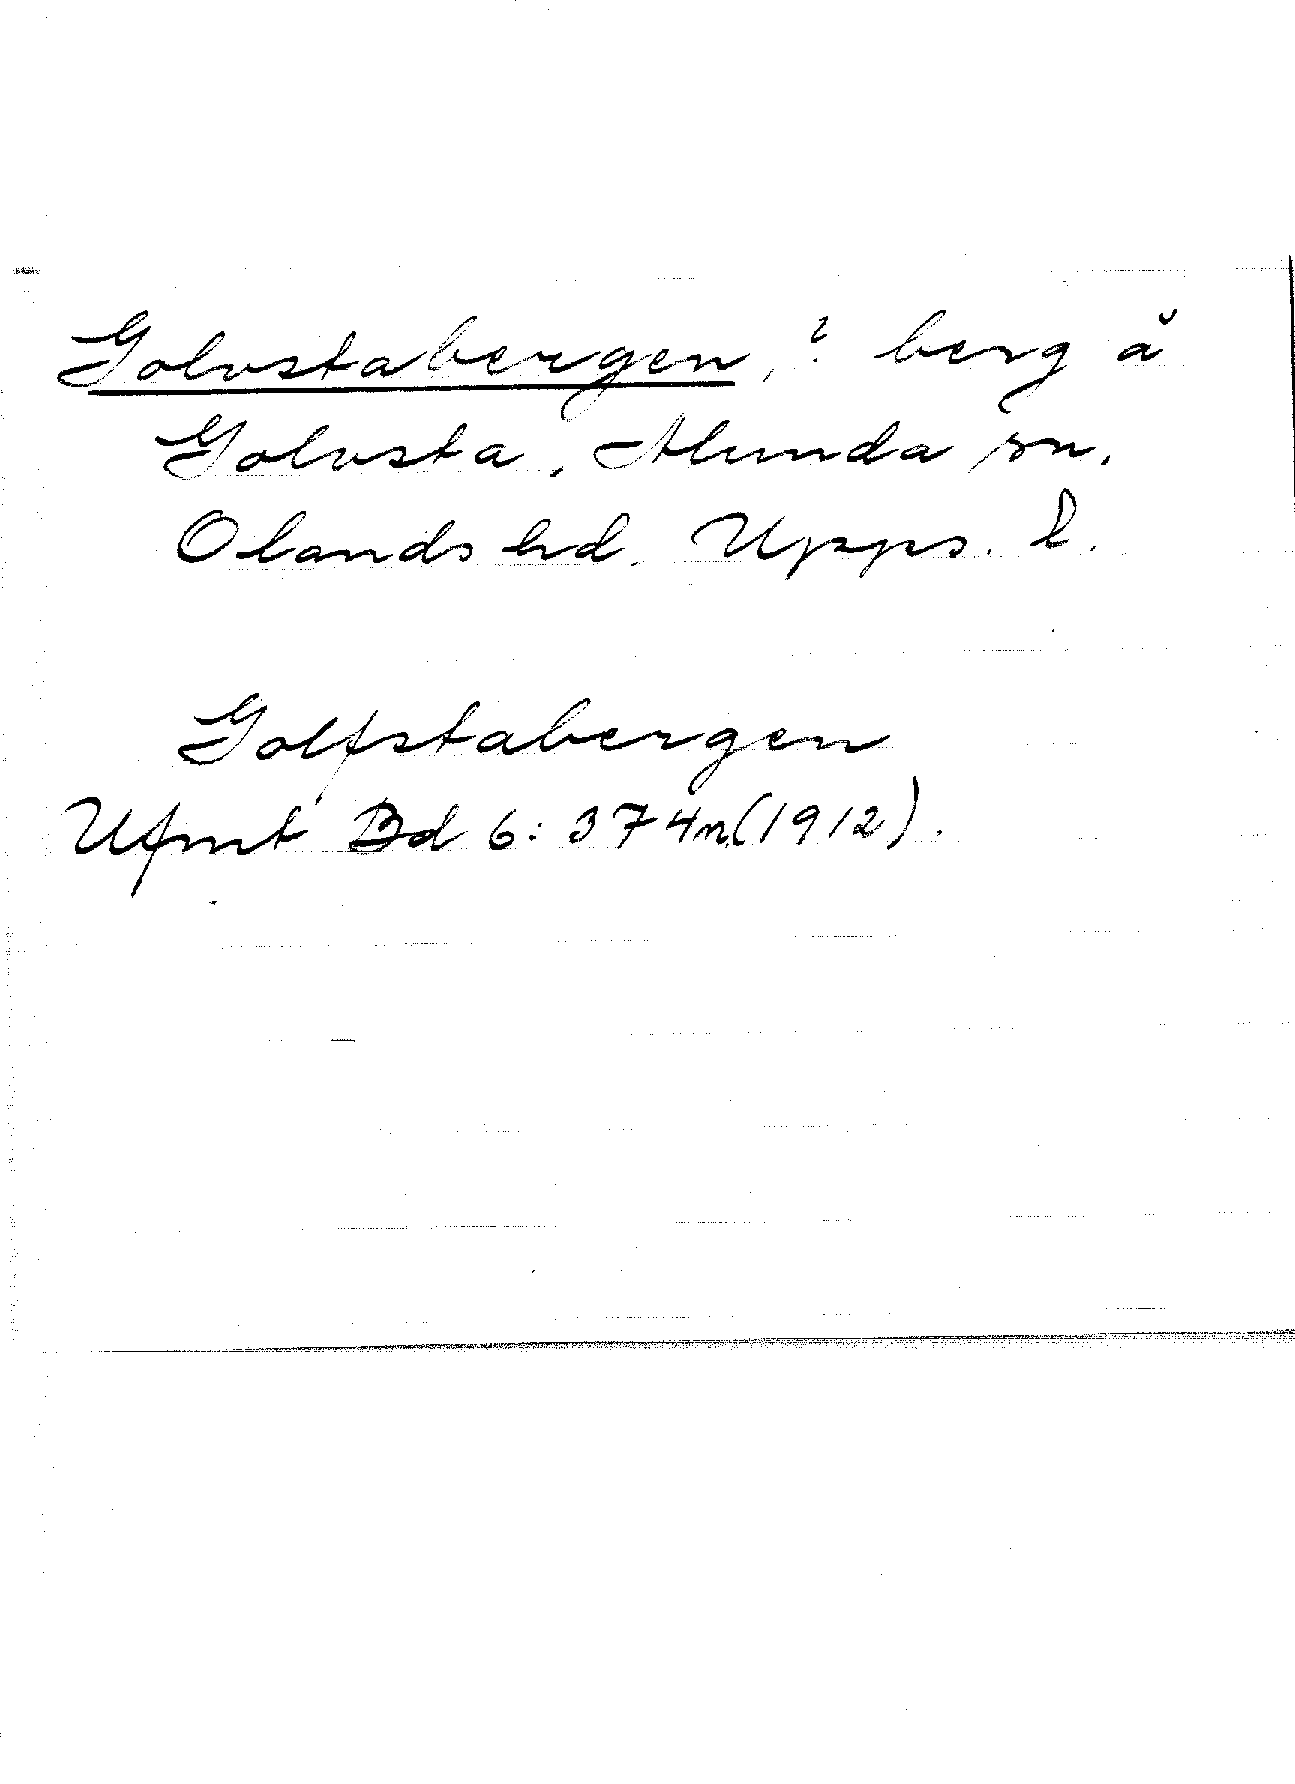 Golvstabergen, ? berg å
Golvsta, Alunda sn.
Olands hd. Upps. l.
Golfstabergen
Ufmt Bd 6: 374n(1912).